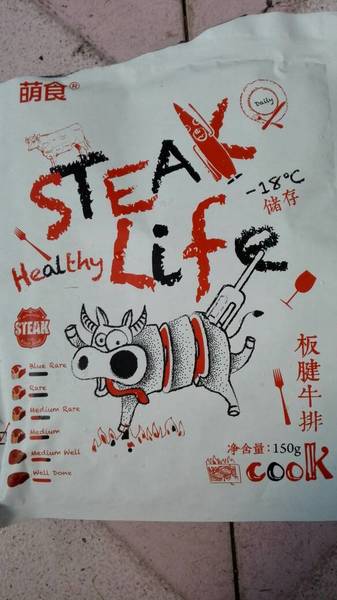 萌食®
Daily
STEAK
-18℃
储存
Healthy
Life
STEAK
Blue Rare
Rare
Medium Rare
Medium
Medium Well
Well Done
板腱牛排
净含量：150g
cook